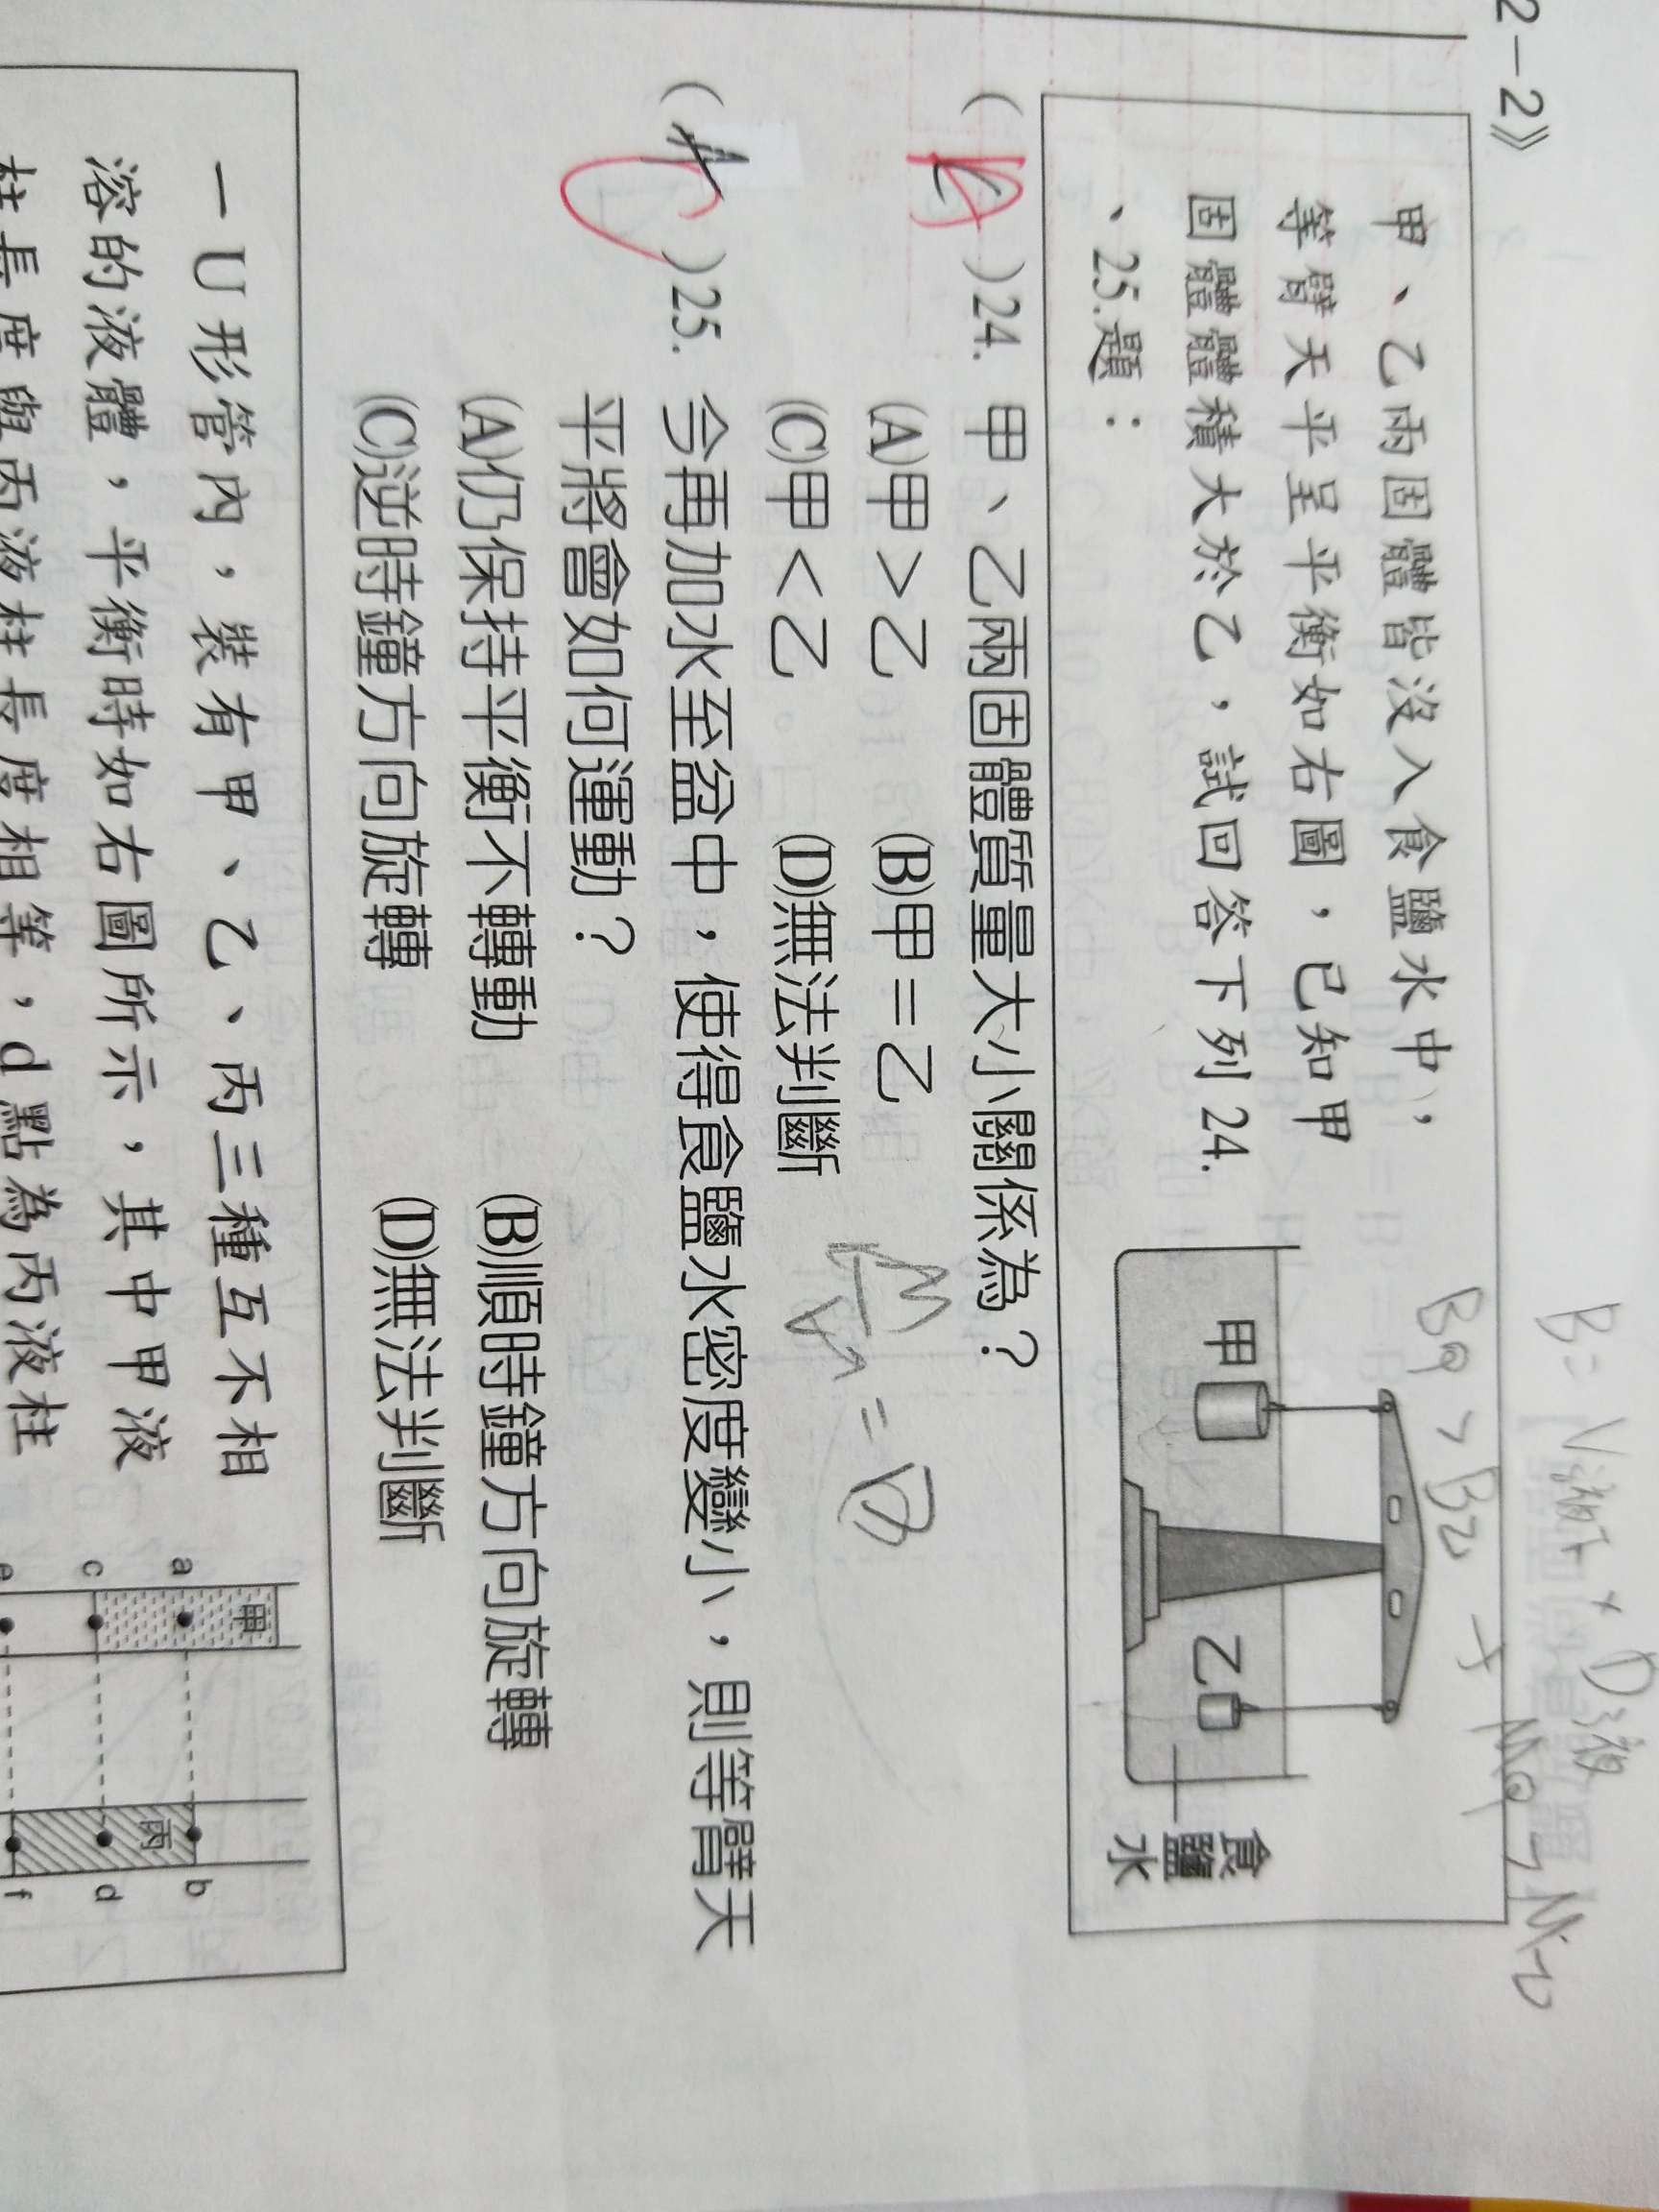 2-2》
B = V液下 × D液
B甲 > B乙 → M甲 > M乙
甲、乙兩固體皆沒入食鹽水中，
等臂天平呈平衡如右圖，已知甲
固體體積大於乙，試回答下列24.
、25.題：
甲
乙
食鹽水
( )24. 甲、乙兩固體質量大小關係為？
(A)甲＞乙 (B)甲＝乙
(C)甲＜乙 (D)無法判斷
( )25. 今再加水至盆中，使得食鹽水密度變小，則等臂天
平將會如何運動？
(A)仍保持平衡不轉動 (B)順時鐘方向旋轉
(C)逆時鐘方向旋轉 (D)無法判斷
一U形管內，裝有甲、乙、丙三種互不相
溶的液體，平衡時如右圖所示，其中甲液
柱長度與丙液柱長度相等，d點為丙液柱
甲
a
c
e
丙
b
d
f